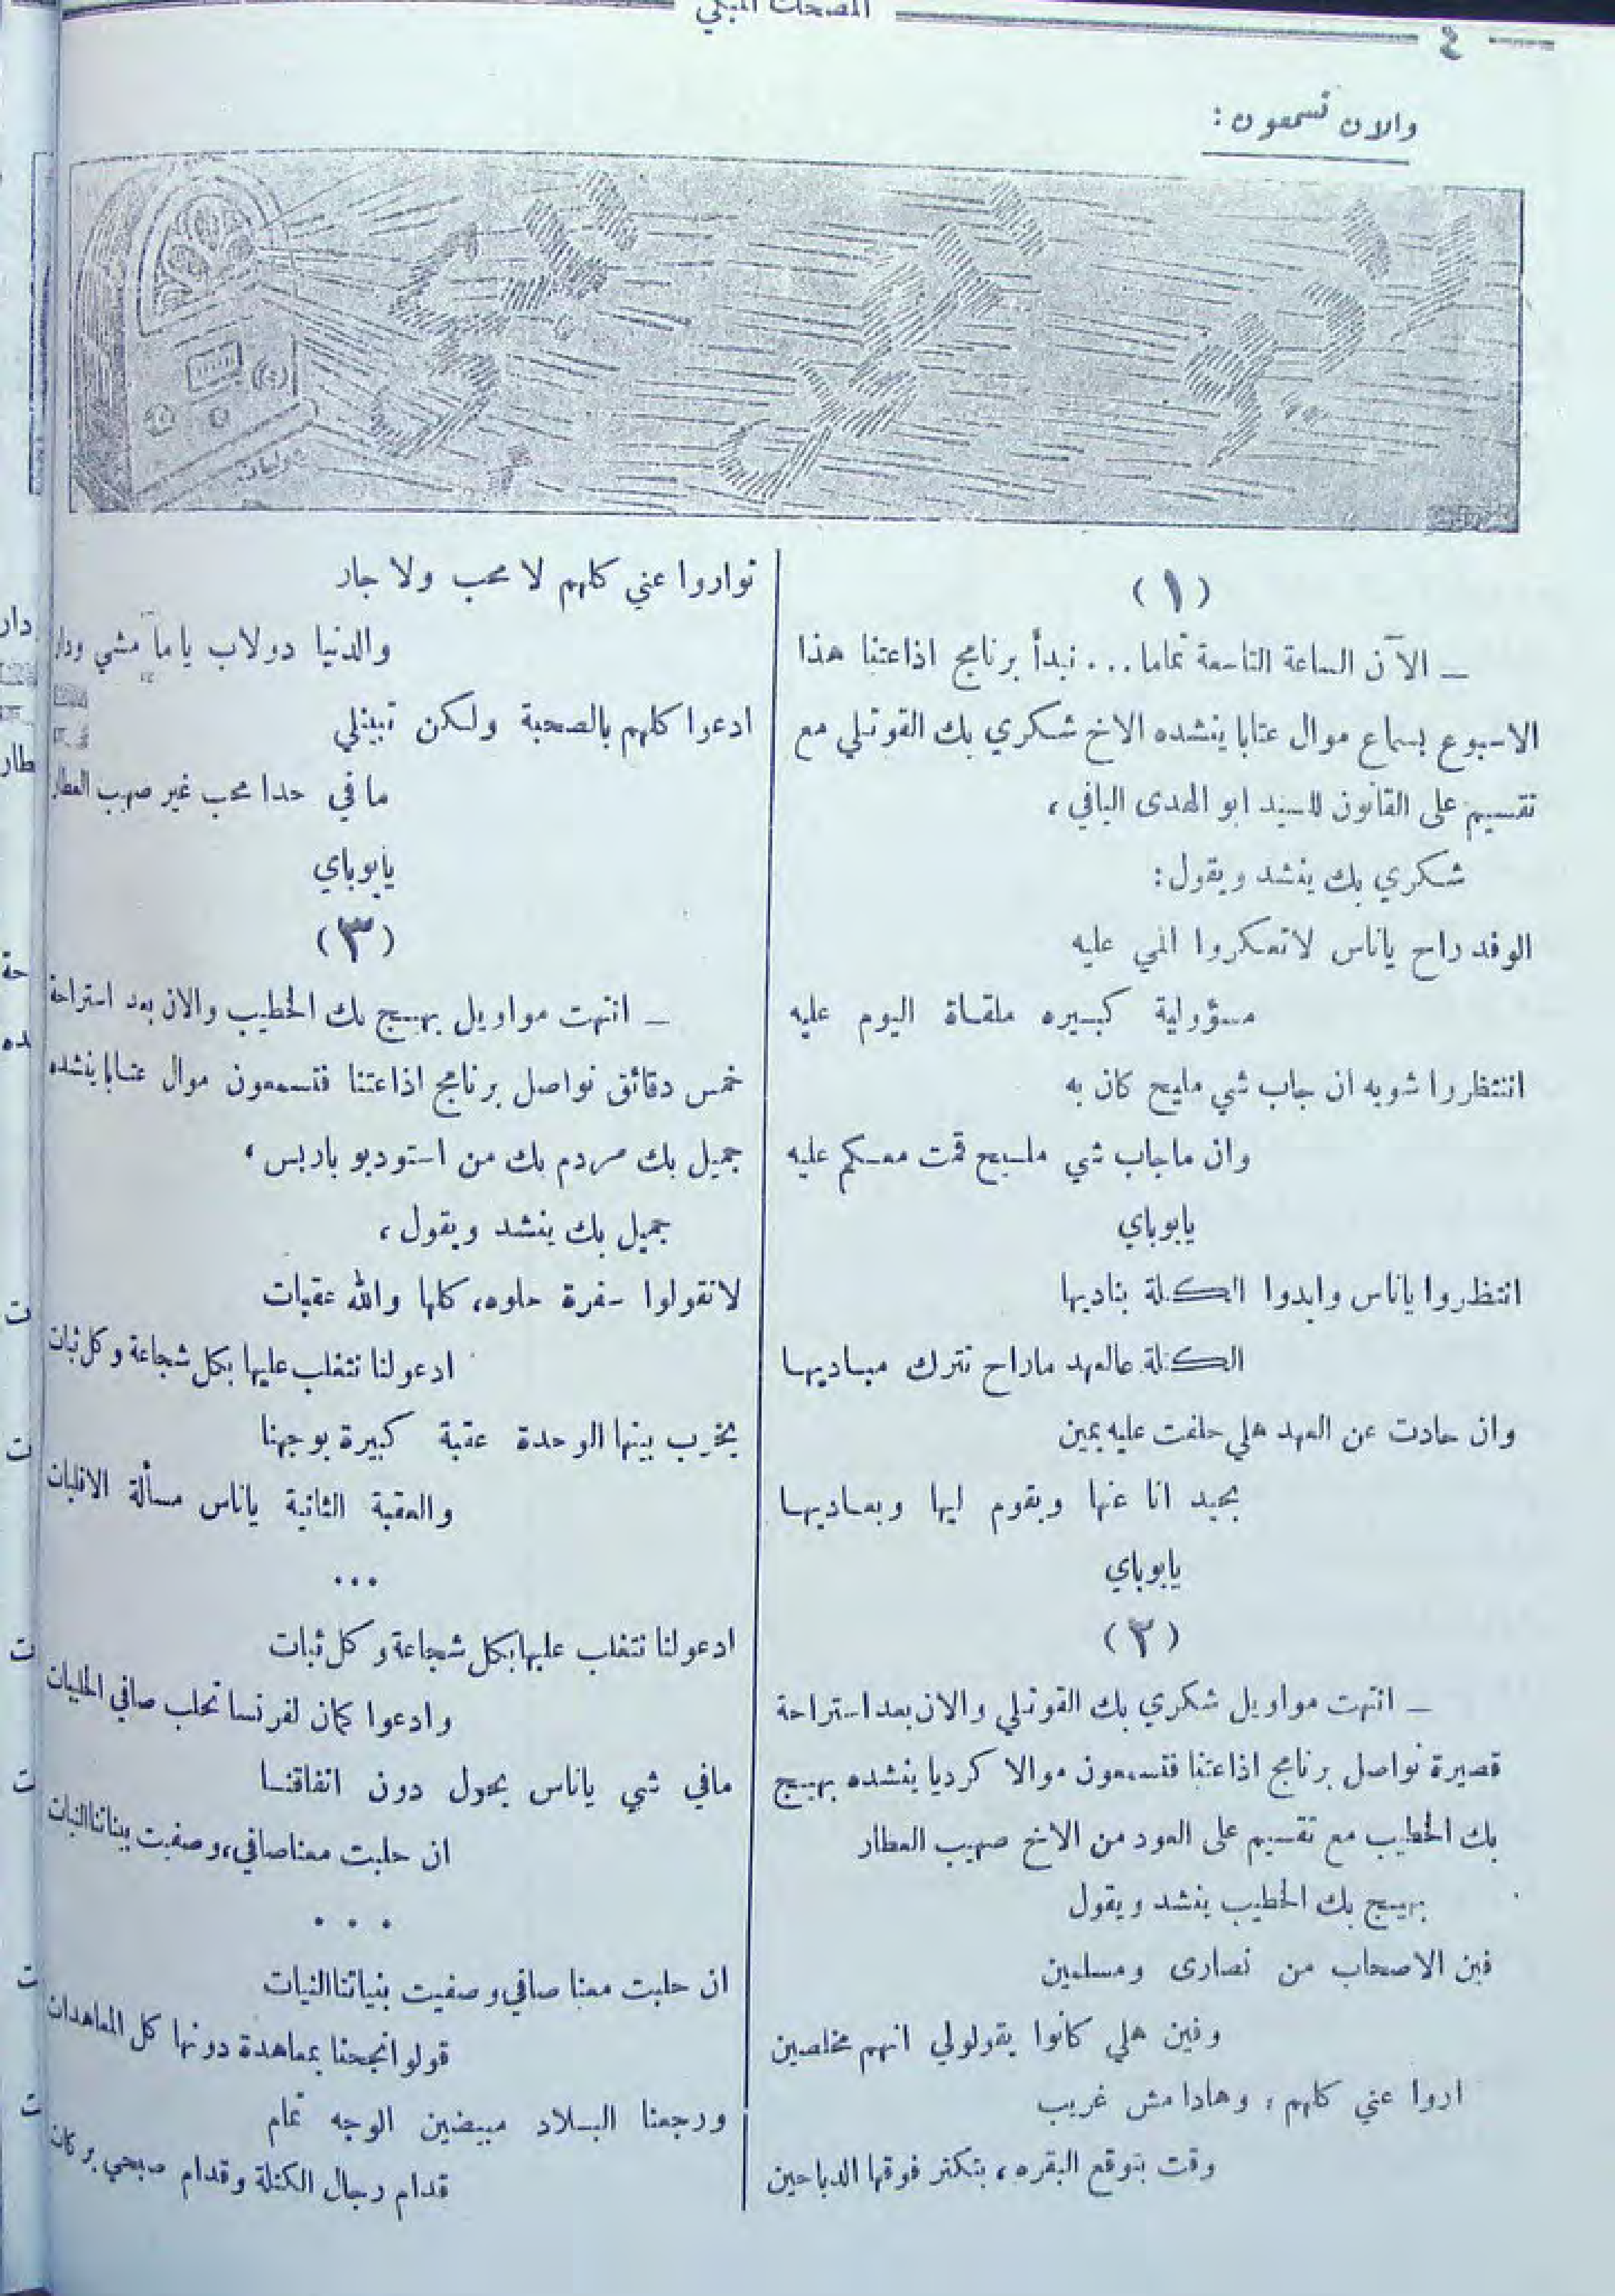 المضحك المبكي
٤
والان تسمعون:
(١)
ـ الآن الساعة التاسعة تماما... نبدأ برنامج اذاعتنا هذا
الاسبوع بسماع موال عتابا ينشده الاخ شكري بك القوتلي مع
تقسيم على القانون للسيد ابو الهدى اليافي،
شكري بك ينشد ويقول:
الوفد راح ياناس لاتعكروا المي عليه
مسؤولية كبيره ملقاة اليوم عليه
انتظروا شويه ان جاب شي مليح كان به
وان ماجاب شي مليح قمت معكم عليه
يابوباي
انتظروا ياناس وايدوا الكتلة بناديها
الكتلة عالعهد ماراح تترك مباديها
وان حادت عن العهد هلي حلفت عليه يمين
بحيد انا عنها وبقوم ليها وبعاديها
يابوباي
(٢)
ـ انتهت مواويل شكري بك القوتلي والان بعد استراحة
قصيرة نواصل برنامج اذاعتنا فتسمعون موالا كرديا ينشده بهيج
بك الخطيب مع تقسيم على العود من الاخ صهيب العطار
بهيج بك الخطيب ينشد ويقول
فين الاصحاب من نصارى ومسلمين
وفين هلي كانوا يقولولي انهم مخلصين
اروا عني كلهم، وهادا مش غريب
وقت بتوقع البقره، بتكتر فوقها الدباحين
تواروا عني كلهم لا محب ولا جار
والدنيا دولاب ياما مشي ودار
ادعوا كلهم بالصحبة ولكن تبينلي
مافي حدا محب غير صهيب العطار
يابوباي
(٣)
ـ انتهت مواويل بهيج بك الخطيب والان بعد استراحة
خمس دقائق نواصل برنامج اذاعتنا فتسمعون موال عتابا ينشده
جميل بك مردم بك من استوديو باريس،
جميل بك ينشد ويقول،
لاتقولوا سفرة حلوه، كلها والله عقبات
ادعو لنا نتغلب عليها بكل شجاعة وكل ثبات
يخرب بيتها الوحدة عقبة كبيرة بوجهنا
والعقبة الثانية ياناس مسألة الاقليات
...
ادعو لنا نتغلب عليها بكل شجاعة وكل ثبات
وادعوا كمان لفرنسا تحلب صافي الحليبات
مافي شي ياناس يحول دون اتفاقنا
ان حلبت معنا صافي، وصفيت بيناتنا النيات
...
ان حلبت معنا صافي وصفيت بنياتنا النيات
قولوا نجحنا بمعاهدة دونها كل المعاهدات
ورجعنا البلاد مبيضين الوجه تمام
قدام رجال الكتلة وقدام صبحي بركات